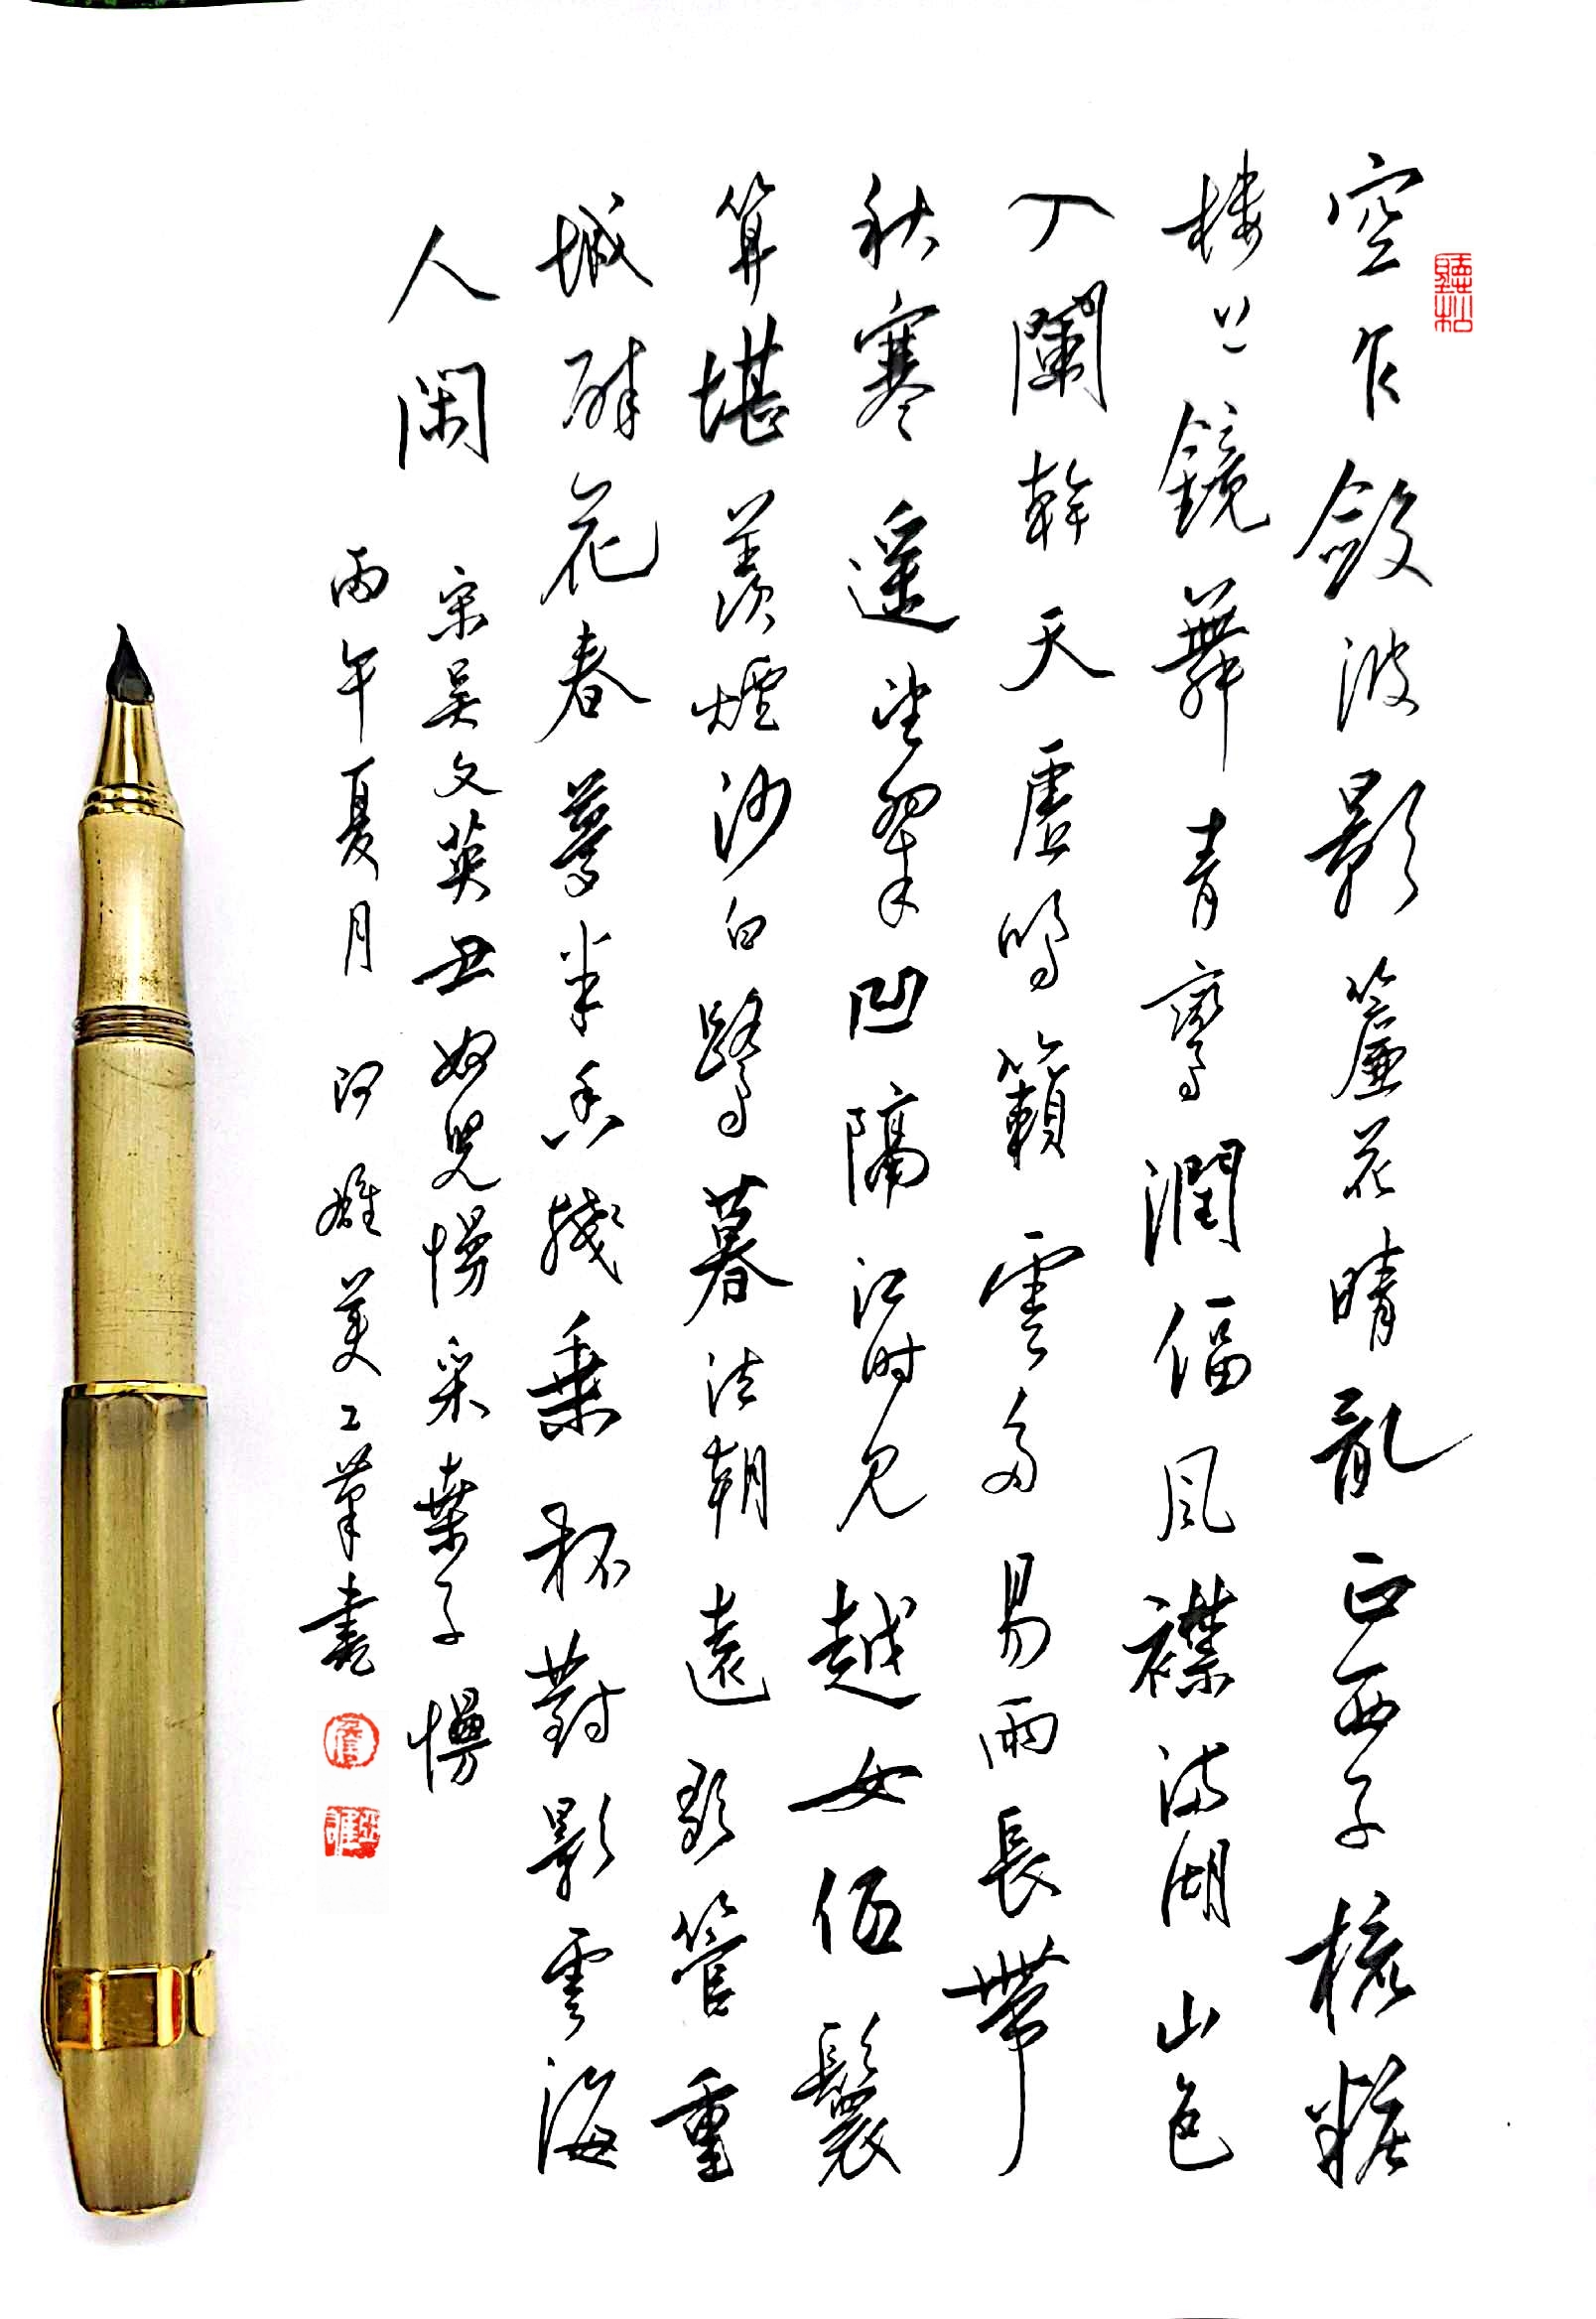 聽松
空乍斂波影簾花晴亂正西子梳糚
樓上鏡舞青鸞潤偪風襟滿湖山色
入闌幹天虛鳴籟雲多易雨長帶
秋寒遥望翠凹隔江时见越女低鬟
算堪羡煙沙白鷺暮往朝還歌管重
城醉花春夢半香殘乘杯對影雲海
人闲
宋吴文英丑奴兒慢采桑子慢
丙午夏月 阿雄美工筆書